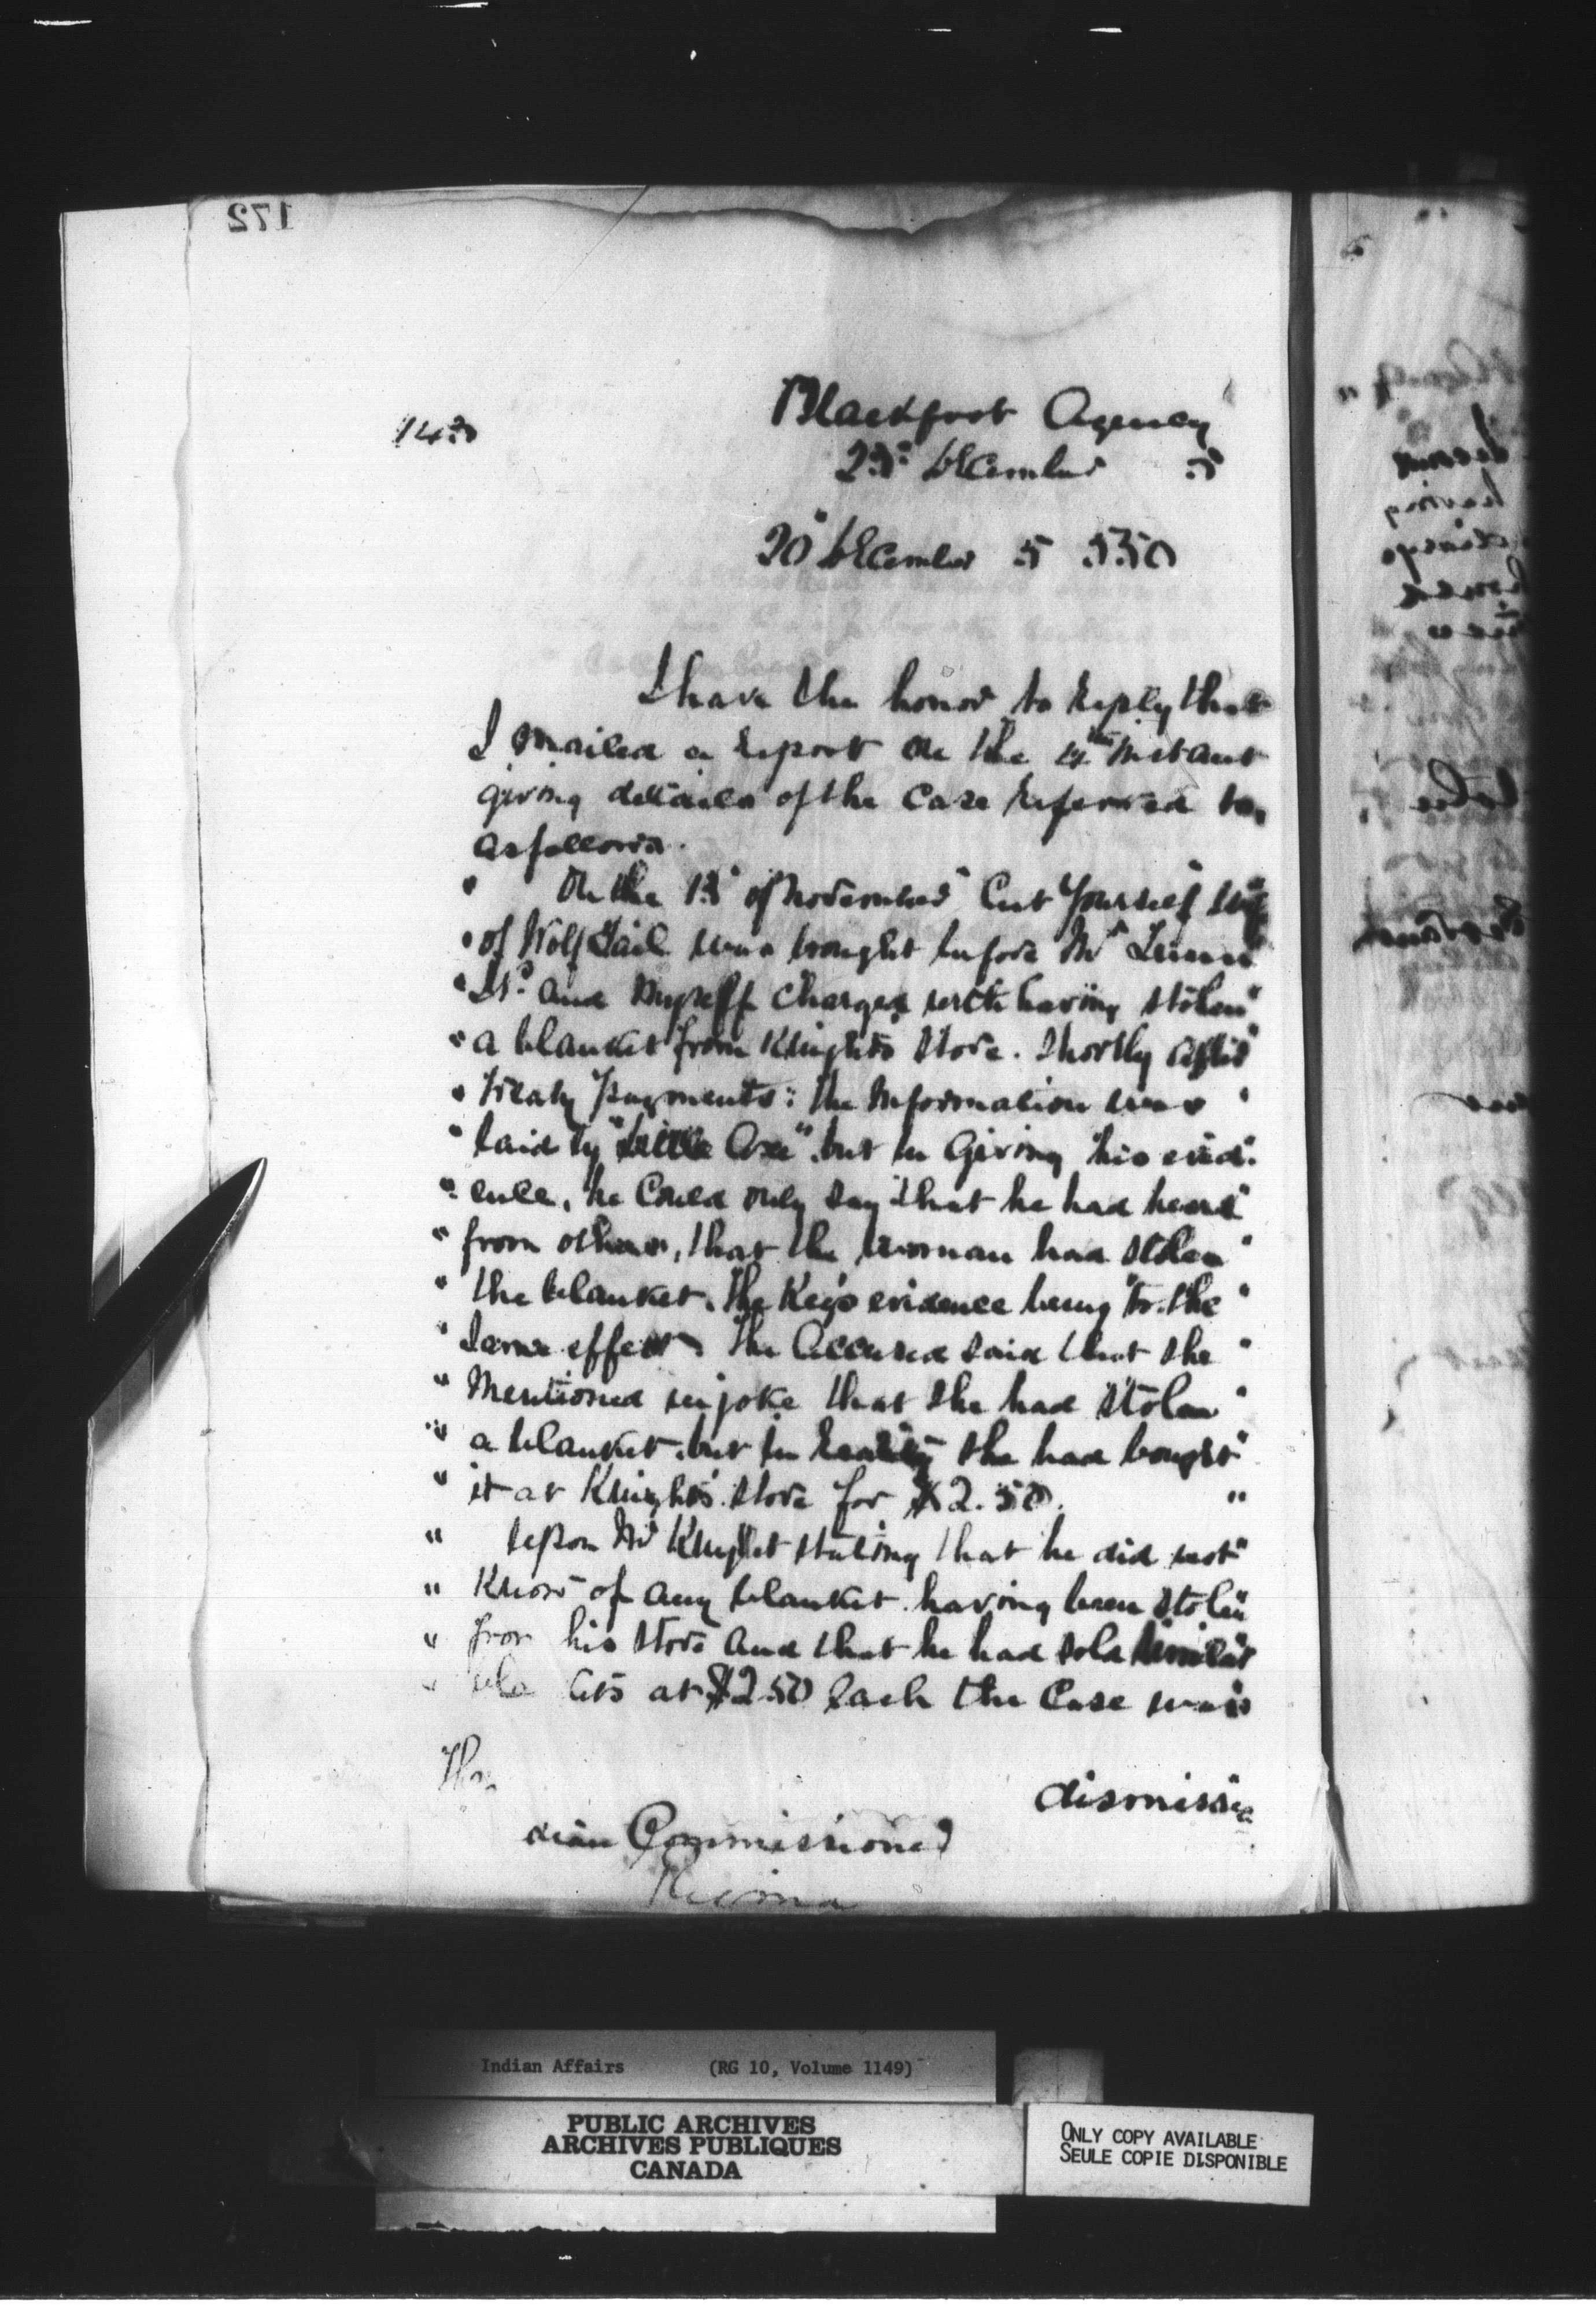 172
143
Blackfoot Agency
23 December 5
20 December 5 5350
I have the honor to reply that
I mailed a report on the 4th Instant
giving details of the case referred to,
as follows.
" On the 13" of November "Cut Yourself" wife
" of Wolf Tail was brought before Mr
" and myself charged with having stolen "
" a blanket from Knights store. Shortly after
" Treaty Payments: the Information was "
" laid by "Little Axe" but in giving his evid:
" ence, he could only say that he had heard "
" from others, that the woman had stolen "
" the blanket. The Key's evidence being to the "
" same effect. The accused said that she "
" mentioned in joke that she had stolen "
" a blanket but in reality she had bought "
" it at Knights' store for $2.50. "
" Upon Mr Knight stating that he did not "
" know of any blanket having been stolen "
" from his store and that he had sold similar
" bla ets at $2.50 each the case was
dismissed
The
dian Commissioner
Regina
Indian Affairs (RG 10, Volume 1149)
PUBLIC ARCHIVES
ARCHIVES PUBLIQUES
CANADA
ONLY COPY AVAILABLE
SEULE COPIE DISPONIBLE